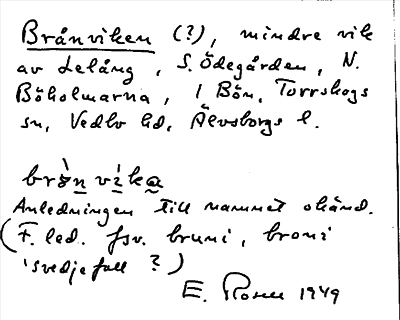 Brånviken (?), mindre vik
av Lelång, S. Ödegården, N.
Böholmarna, 1 Bön, Torrskogs
sn, Vedbo hd, Älvsborgs l.
Anledningen till namnet okänd.
(F. led. fsv. bruni, broni
'svedjefall ?)
E. Rosen 1949